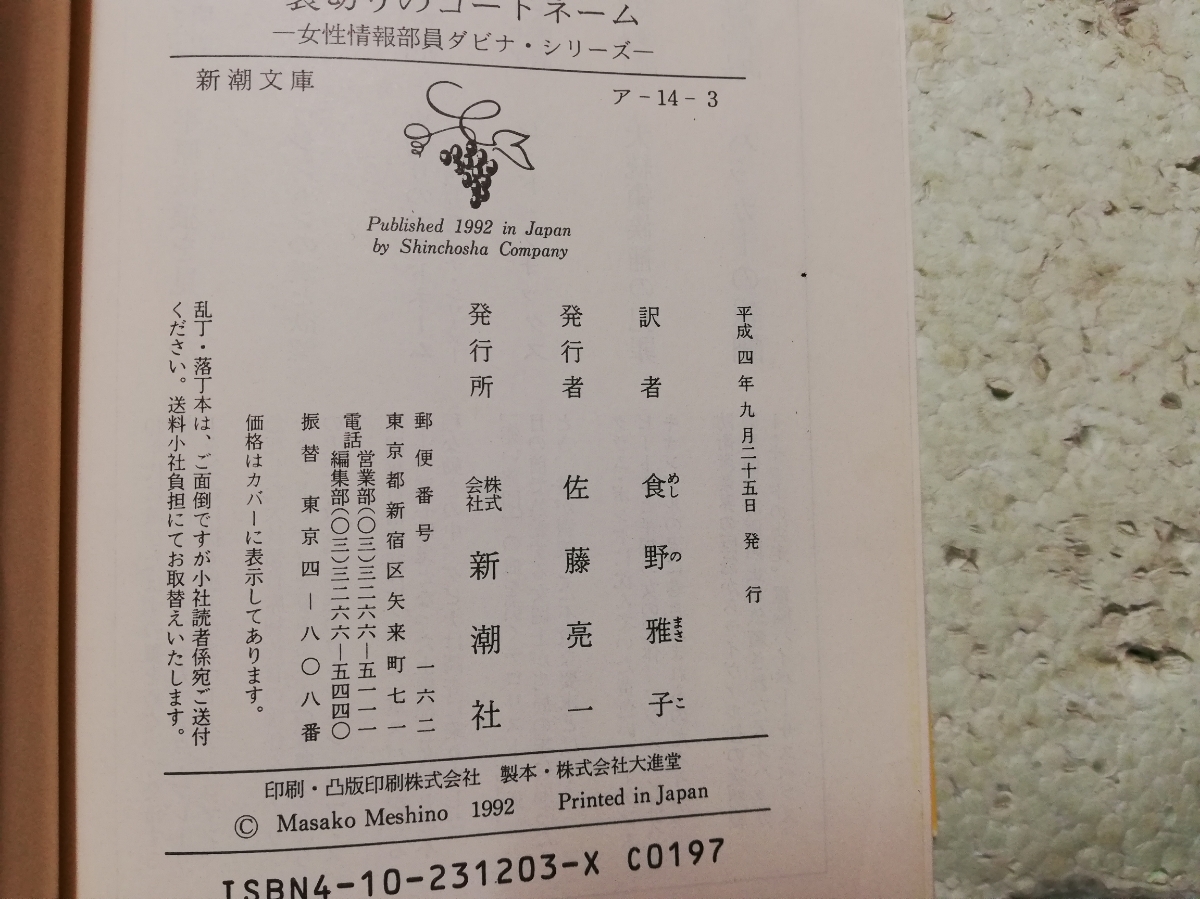 裏切りのコードネーム
—女性情報部員ダビナ・シリーズ—
新潮文庫
ア-14-3
Published 1992 in Japan
by Shinchosha Company
平成四年九月二十五日 発行
訳者 食野雅子
めしのまさこ
発行者 佐藤亮一
発行所 株式会社 新潮社
郵便番号 一六二
東京都新宿区矢来町七一
電話 営業部(〇三)三二六六―五一一一
編集部(〇三)三二六六―五四四〇
振替 東京四―八〇八番
価格はカバーに表示してあります。
乱丁・落丁本は、ご面倒ですが小社読者係宛ご送付
ください。送料小社負担にてお取替えいたします。
印刷・凸版印刷株式会社 製本・株式会社大進堂
© Masako Meshino 1992 Printed in Japan
ISBN4-10-231203-X C0197